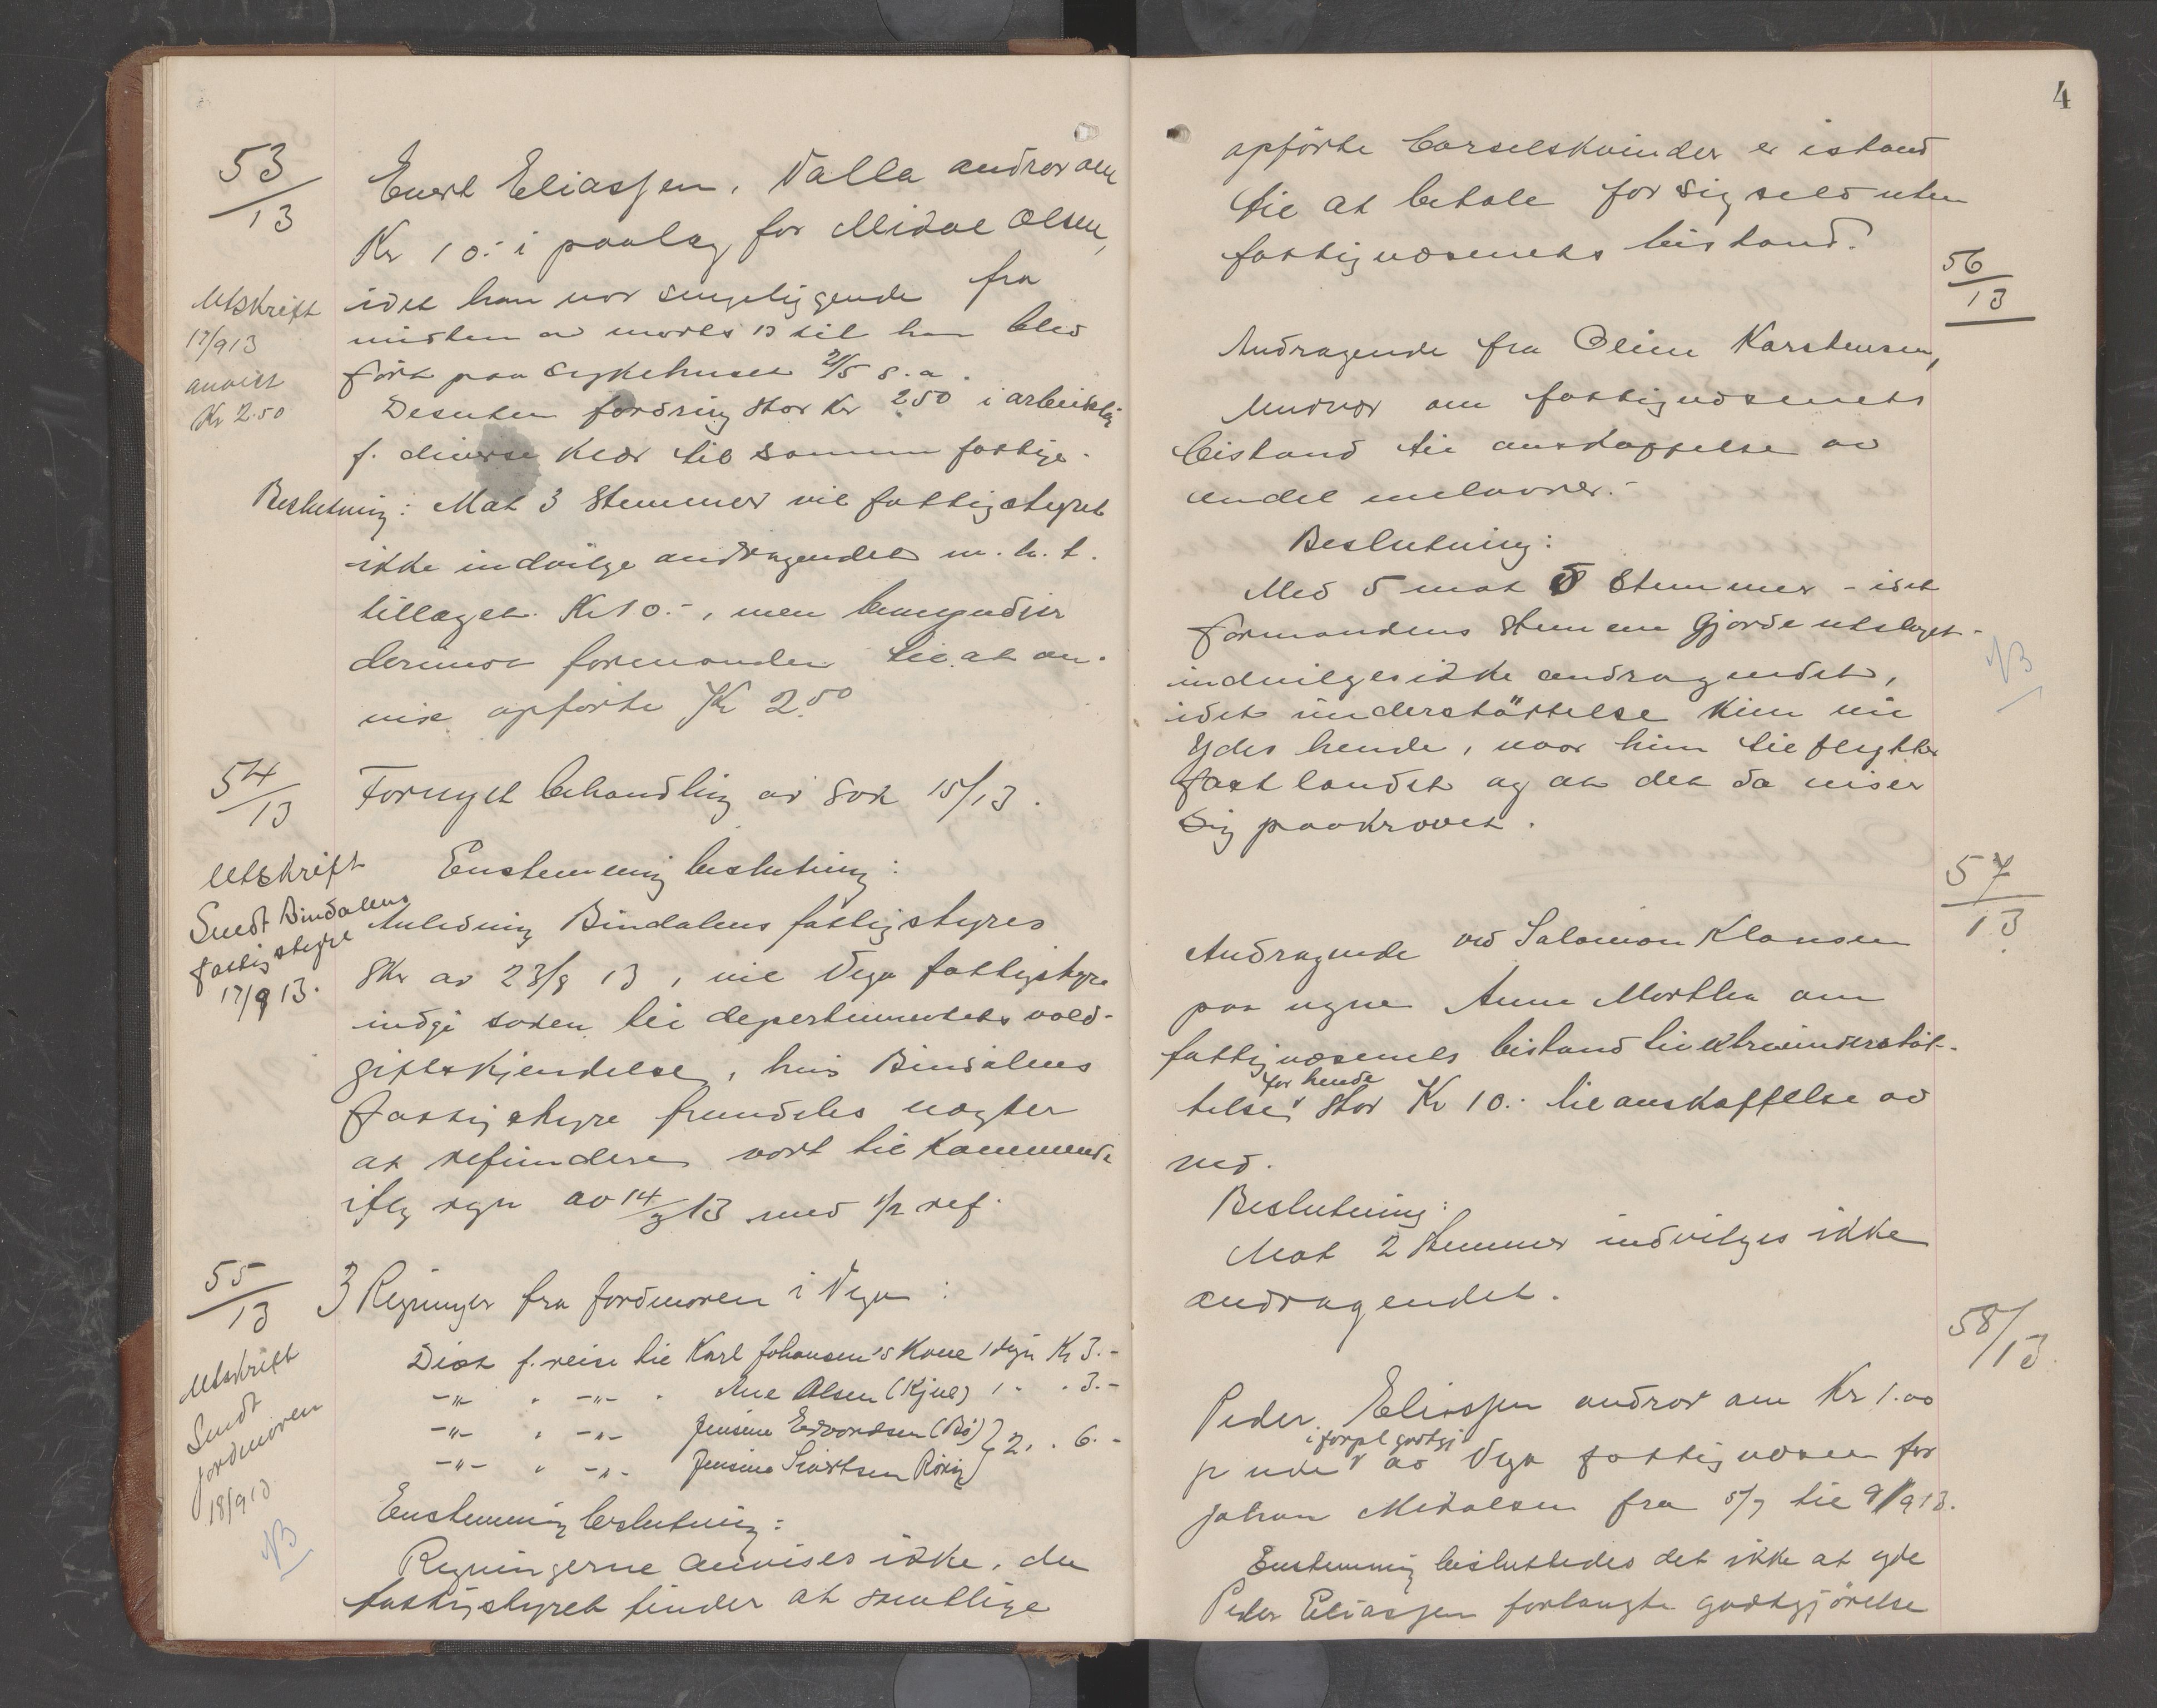 53
13
Evert Eliassen, Valla andrar om
Kr 10.- i paalæg for Mikal Olsen,
idet han var sengeliggende fra
midten av marts 13 til han blev
ført paa sykehuset 2/5 s. a.
Desuten fordring stor Kr 2.50 i arbeidsløn
f. diverse klær til samme fattige.
Utskrift
17/9 13
anvist
Kr 2.50
Beslutning: Mot 3 stemmer vil fattigstyret
ikke indvilge andragendet m. h. t.
tillæget Kr 10.-, men bemyndiger
derimot formanden til at an-
vise opførte Kr 2.50
54
13
Fornyet behandling av sak 15/13.
Utskrift
Sendt Bindalens
fattigstyre
17/9 13.
Enstemmig beslutning:
Anledning Bindalens fattigstyres
skr av 23/8 13, vil Vega fattigstyre
indgi saken til departementets vold-
giftskjendelse, hvis Bindalens
fattigstyre fremdeles nægter
at refundere vort tilkommende
iflg regn av 14/3 13 med 1/2 ref.
55
13
3 Regninger fra jordmoren i Vega:
Utskrift
Sendt
jordmoren
18/9 13
NB
Diæt f. reise til Karl Johansen's kone 1 døgn Kr 3.-
-"- " -"- " Ane Olsen (Kjul) 1 " " 3.-
-"- " -"- Jensine Edvardsen (Bø) } 2 " " 6.-
-"- " -"- Jensine Sivertsen Rørøy
Enstemmig beslutning:
Regningerne anvises ikke, da
fattigstyret finder at samtlige
4
opførte barselskvinder er istand
til at betale for sig selv uten
fattigvæsenets bistand.
56
13
Andragende fra Oline Karstensen,
om fattigvæsenets
bistand til anskaffelse av
endel melvarer.-
Beslutning:
Med 5 mot 5 stemmer - idet
formandens stemme gjorde utslaget -
NB
indvilges ikke andragendet,
idet understøttelse kun vil
ydes hende, naar hun tilflytter
fastlandet og at det da viser
sig paakrævet.
57
13
Andragende ved Salamon Klausen
paa vegne Anne Martha om
fattigvæsenets bistand til ekstraunderstøt-
telse for hende stor Kr 10.- til anskaffelse av
ved.
Beslutning:
Mot 2 stemmer indvilges ikke
andragendet.
58/13.
Peder Eliassen andrar om Kr 1.00
pr uke i forpl godtgj av Vega fattigvæsen for
Johan Mikalsen fra 5/7 til 9/9 13.
Enstemmig besluttedes det ikke at yde
Peder Eliassen forlangte godtgjørelse